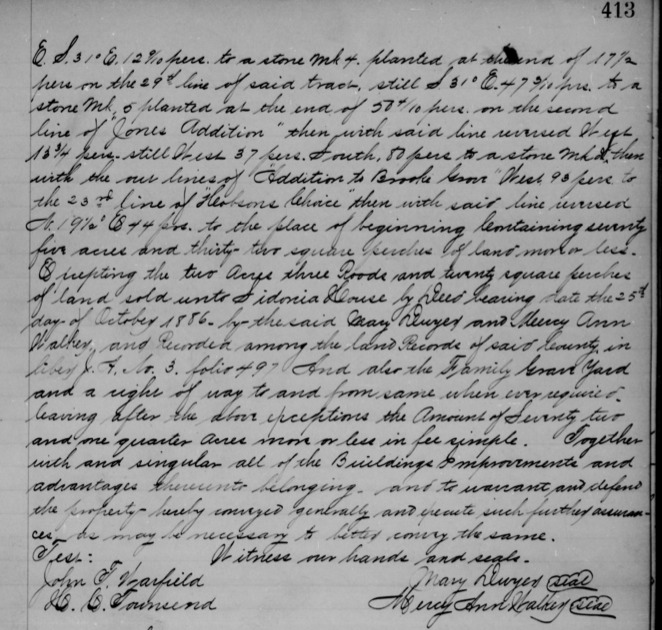 413
E. S. 31° E. 12 9/10 pers. to a stone Mk 4. planted at the end of 17 1/2
pers on the 29th line of said tract, still S. 31° E. 47 3/10 prs. to a
stone Mk, 5 planted at the end of 50 4/10 pers. on the second
line of "Jones Addition" then with said line reversed West,
13 3/4 pers. still West 37 pers. South, 80 pers to a stone Mkd. then
with the out lines of "Addition to Brooke Grove" West 93 pers to
the 23rd line of "Hobsons Choice" then with said line reversed
N. 19 1/2° E 44 prs. to the place of beginning Containing seventy
five acres and thirty-two square perches of land more or less.
Excepting the two Acres three Roods and twenty square perches
of land sold unto Sidonia House by Deed bearing date the 25th
day of October 1886. by the said Mary Dwyer and Mercy Ann
Walker, and Recorded among the land Records of said County in
liber J. A. No. 3. folio 497 And also the Family Grave Yard
and a right of way to and from same when ever required.
leaving after the above exceptions the Amount of Seventy two
and one quarter Acres more or less in fee simple. Together
with and singular all of the Buildings Improvements and
advantages thereunto belonging. and to warrant and defend
the property hereby conveyed generally and execute such further assuran-
ces, as may be necessary to better convey the same.
Test: Witness our hands and seals.
John T. Warfield Mary Dwyer seal
H. C. Townsend Mercy Ann Walker seal